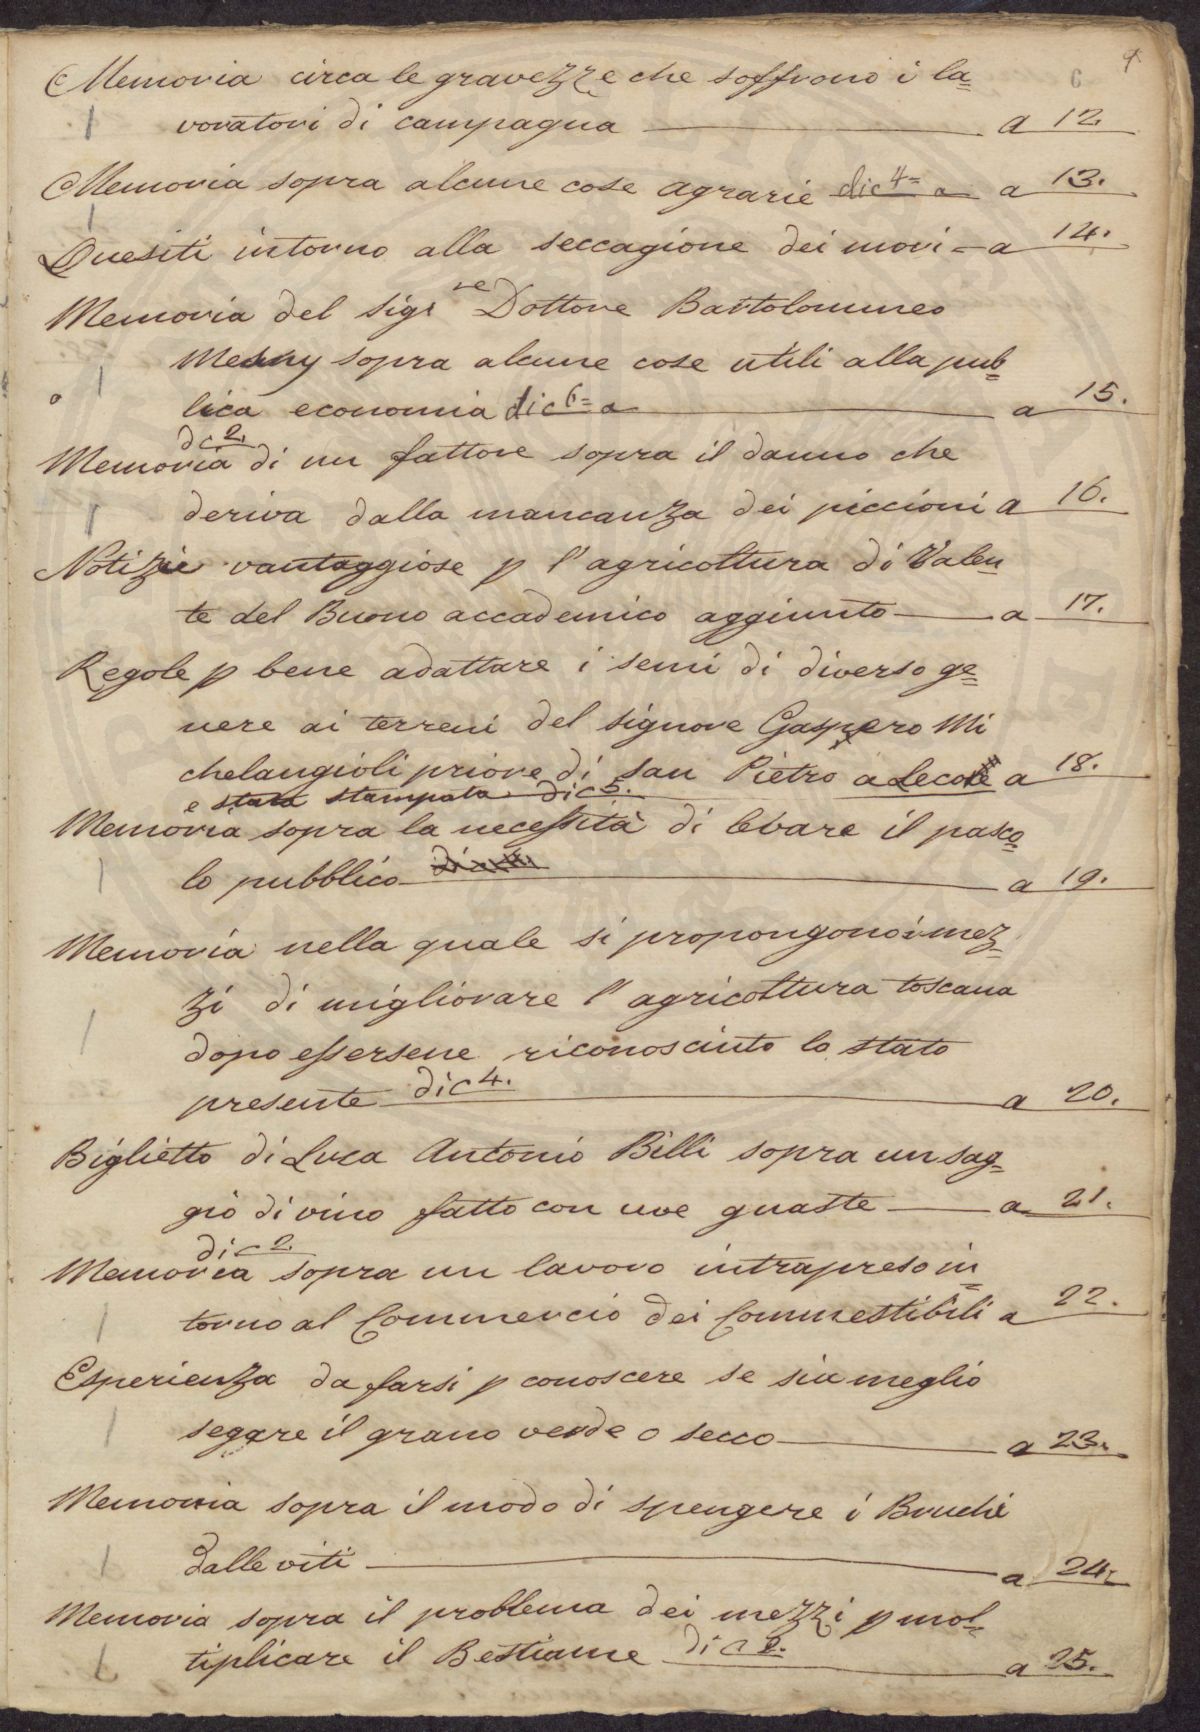 6
9
Memoria circa le gravezze che soffrono i la=
voratori di campagna a 12.
Memoria sopra alcune cose agrarie dic 4= a a 13.
Quesiti intorno alla seccagione dei mori = a 14.
Memoria del sigr re Dottore Bartolommeo
Mesny sopra alcune cose utili alla pub=
lica economia dic 6= a a 15.
dic 2.
Memoria di un fattore sopra il danno che
deriva dalla mancanza dei piccioni a 16.
Notizie vantaggiose p l'agricoltura di Valen=
te del Buono accademico aggiunto a 17.
Regole p bene adattare i semi di diverso ge=
nere ai terreni del signore Gaspero Mi
chelangioli priore di san Pietro a Lecore a 18.
e stata stampata dic 5.
Memoria sopra la necessità di levare il pasco=
lo pubblico a 19.
Memoria nella quale si propongono i mez=
zi di migliorare l'agricoltura toscana
dopo essersene riconosciuto lo stato
presente dic 4. a 20.
Biglietto di Luca Antonio Billi sopra un sag=
gio di vino fatto con uve guaste a 21.
dic 2.
Memoria sopra un lavoro intrapreso in=
torno al Commercio dei Commestibili a 22.
Esperienza da farsi p conoscere se sia meglio
segare il grano verde o secco a 23.
Memoria sopra il modo di spengere i Bruchi
dalle viti a 24.
Memoria sopra il problema dei mezzi p mol=
tiplicare il Bestiame dic 2. a 25.